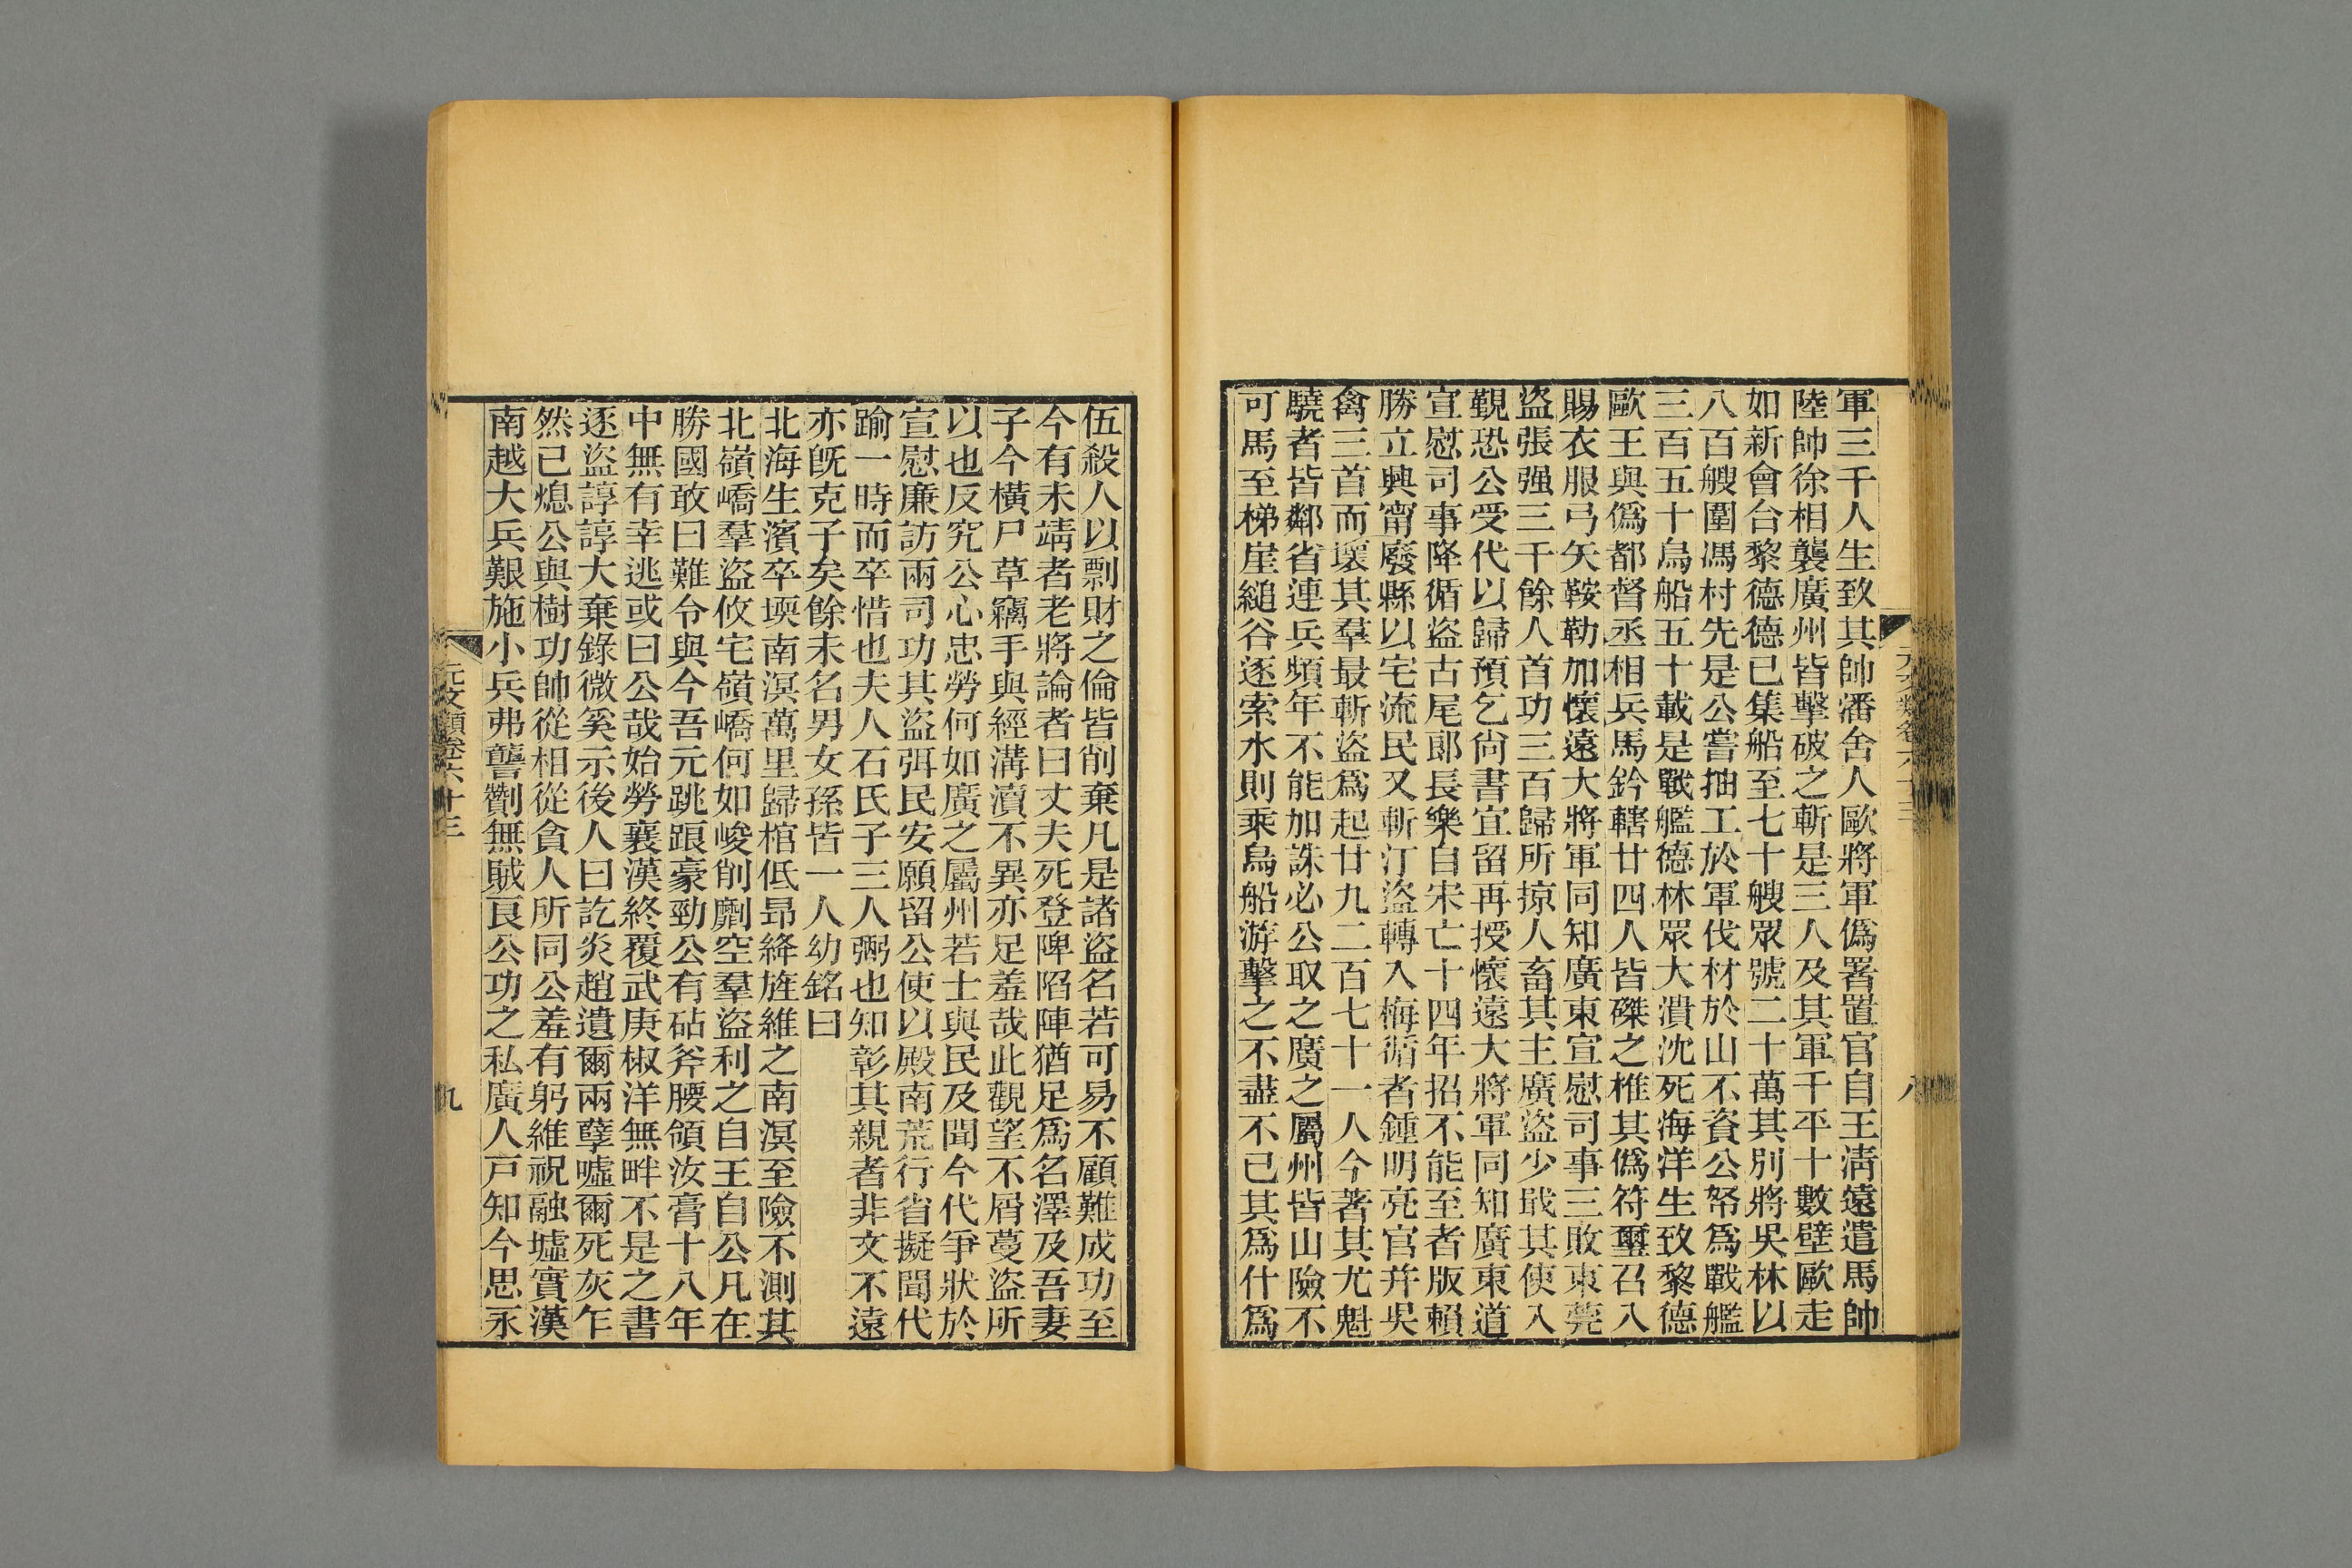 軍三千人生致其帥潘舍人歐將軍僞署置官自王淸遠遣馬帥
陸帥徐相襲廣州皆擊破之斬是三人及其軍千平十數壁歐走
如新會台黎德德已集船至七十艘眾號二十萬其別將吳林以
八百艘圍馮村先是公嘗抽工於軍伐材於山不資公帑爲戰艦
三百五十烏船五十載是戰艦德林眾大潰沈死海洋生致黎德
歐王與僞都督丞相兵馬鈐轄廿四人皆磔之椎其僞符璽召入
賜衣服弓矢鞍勒加懷遠大將軍同知廣東宣慰司事三敗東莞
盜張强三千餘人首功三百歸所掠人畜其主廣盜少戢其使入
覲恐公受代以歸預乞尙書宜留再授懷遠大將軍同知廣東道
宣慰司事降循盜古尾郎長樂自宋亡十四年招不能至者版賴
勝立興甯廢縣以宅流民又斬汀盜轉入梅循者鍾明亮官幷吳
禽三首而壞其羣最斬盜爲起廿九二百七十一人今著其尤魁
驍者皆鄰省連兵頻年不能加誅必公取之廣之屬州皆山險不
可馬至梯崖縋谷逐索水則乘烏船游擊之不盡不已其爲什爲
元文類卷六十三
八
伍殺人以剽財之倫皆削棄凡是諸盜名若可易不顧難成功至
今有未靖者老將論者曰丈夫死登陴陷陣猶足爲名澤及吾妻
子今橫尸草竊手與經溝瀆不異亦足羞哉此觀望不屑蔓盜所
以也反究公心忠勞何如廣之屬州若士與民及聞今代爭狀於
宣慰廉訪兩司功其盜弭民安願留公使以殿南荒行省擬聞代
踰一時而卒惜也夫人石氏子三人弼也知彰其親者非文不遠
亦旣克子矣餘未名男女孫皆一人幼銘曰
北海生濱卒瓀南溟萬里歸棺低昻絳旌維之南溟至險不測其
北嶺嶠羣盜攸宅嶺嶠何如峻削劘空羣盜利之自王自公凡在
勝國敢曰難令與今吾元跳踉豪勁公有砧斧腰領汝膏十八年
中無有幸逃或曰公哉始勞襄漢終覆武庚椒洋無畔不是之書
逐盜諄諄大棄錄微奚示後人曰訖炎趙遺爾兩孽噓爾死灰乍
然已熄公與樹功帥從相從貪人所同公羞有躬維祝融墟實漢
南越大兵艱施小兵弗讋劗無賊良公功之私廣人戸知今思永
元文類卷六十三
九